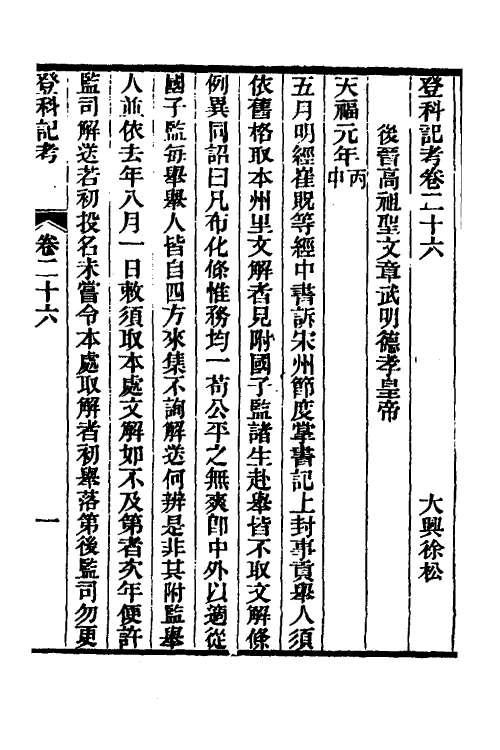 登科記考卷二十六 大興徐松
後晉高祖聖文章武明德孝皇帝
天福元年丙申
五月明經崔貺等經中書訴宋州節度掌書記上封事貢舉人須
依舊格取本州里文解者見附國子監諸生赴舉皆不取文解條
例異同詔曰凡布化條惟務均一苟公平之無爽卽中外以適從
國子監每舉舉人皆自四方來集不詢解送何辨是非其附監舉
人並依去年八月一日敕須取本處文解如不及第者次年便許
監司解送若初投名未嘗令本處取解者初舉落第後監司勿更
登科記考 卷二十六 一